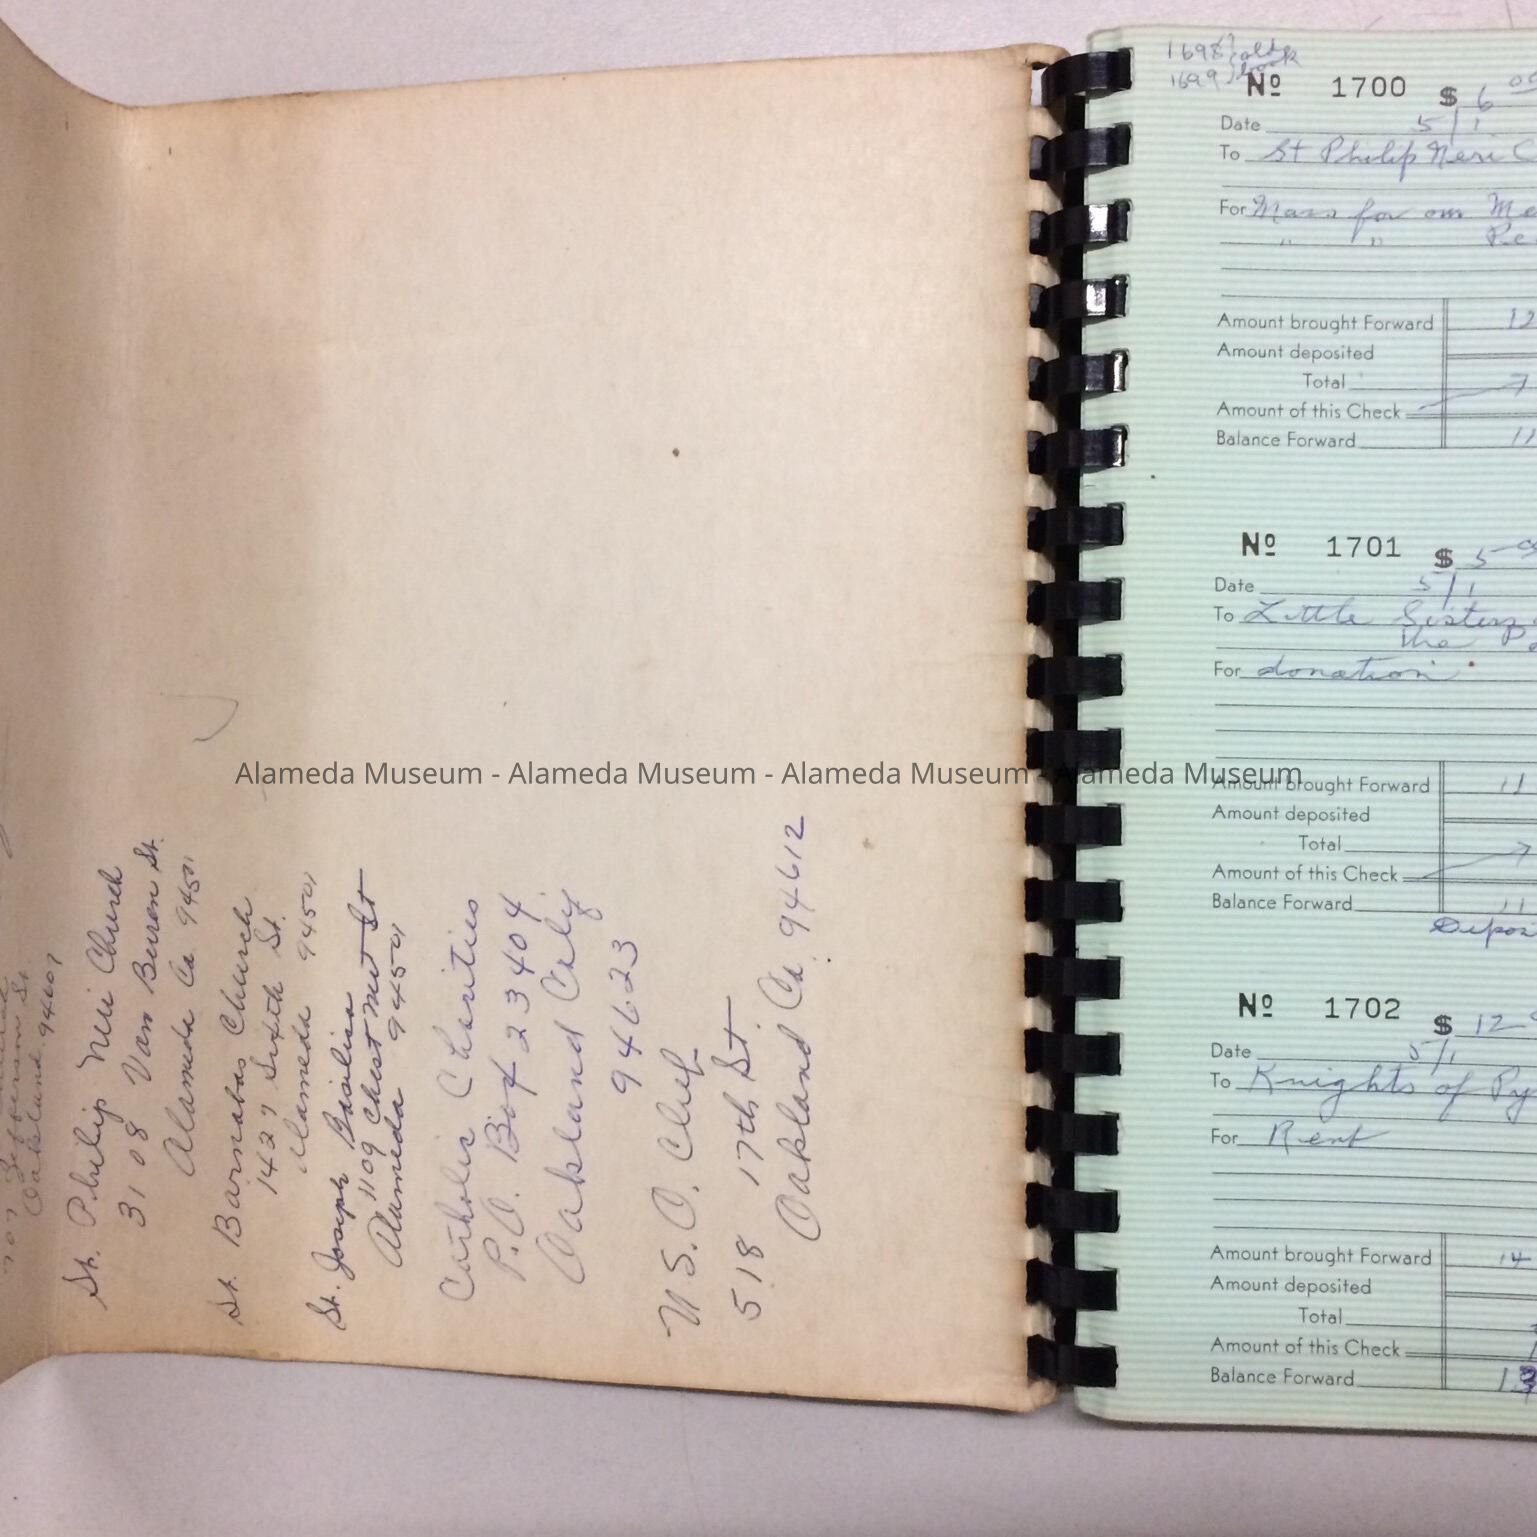 Jefferson St.
Oakland 94607
St. Philip Neri Church
3108 Van Buren St.
Alameda Ca 94501
St. Barnabas Church
1427 Sixth St.
Alameda 94501
St. Joseph Basilica
1109 Chestnut St
Alameda 94501
Catholic Charities
P.O. Box 23404
Oakland Calif
94623
U.S.O. Club
518 17th St.
Oakland Ca. 94612
Alameda Museum - Alameda Museum - Alameda Museum - Alameda Museum
1698 } old
1699 } book
Nº 1700 $ 6 00
Date 5/1
To St Philip Neri C
For Mass for our Me
" " De
Amount brought Forward 12
Amount deposited
Total
Amount of this Check
Balance Forward 11
Nº 1701 $ 5 00
Date 5/1
To Little Sisters
the Po
For donation
Amount brought Forward 11
Amount deposited
Total
Amount of this Check
Balance Forward 11
Depos
Nº 1702 $ 12
Date 5/1
To Knights of Py
For Rent
Amount brought Forward 14
Amount deposited
Total
Amount of this Check
Balance Forward